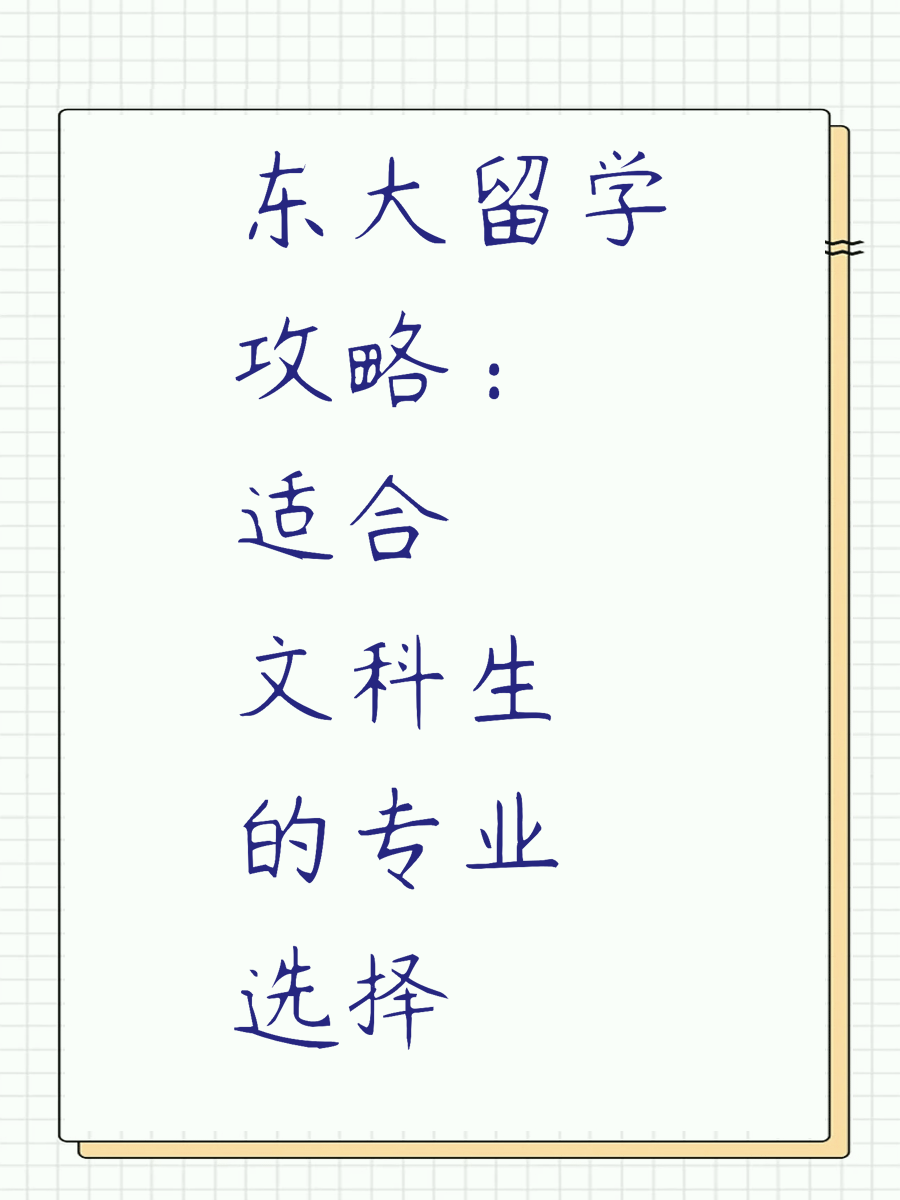 东大留学
攻略：
适合
文科生
的专业
选择